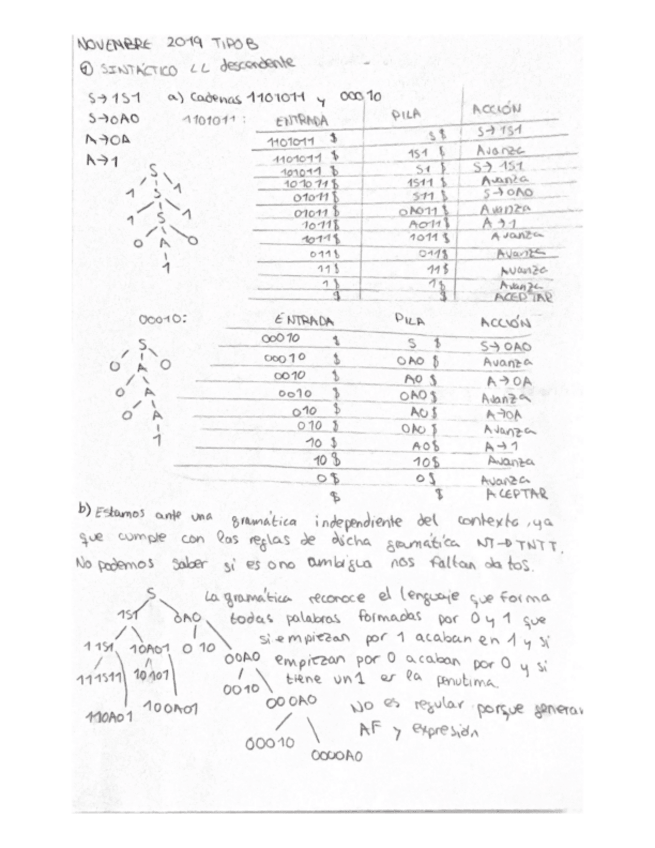 NOVEMBRE 2019 TIPO B
① SINTÁCTICO LL descendente
S→1S1 a) Cadenas 1101011 y 00010
S→0A0 1101011: ENTRADA PILA ACCIÓN
A→0A
A→1
1101011 $ S$ S→1S1
1101011 $ 1S1 $ Avanza
101011 $ S1 $ S→1S1
101011$ 1S11 $ Avanza
01011$ S11 $ S→0A0
01011$ 0A011$ Avanza
1011$ A011$ A→1
1011$ 1011$ Avanza
011$ 011$ Avanza
11$ 11$ Avanza
1$ 1$ Avanza
$ $ ACEPTAR
S
1 S 1
1 S 1
0 A 0
1
00010: ENTRADA PILA ACCIÓN
00010 $ S $ S→0A0
00010 $ 0A0 $ Avanza
0010 $ A0 $ A→0A
0010 $ 0A0$ Avanza
010 $ A0$ A→0A
010 $ 0A0 $ Avanza
10 $ A0$ A→1
10$ 10$ Avanza
0$ 0$ Avanza
$ $ ACEPTAR
S
0 A 0
0 A
0 A
1
b) Estamos ante una gramática independiente del contexto, ya
que cumple con las reglas de dicha gramática NT→TNTT.
No podemos saber si es o no ambigua nos faltan datos.
S
1S1 0A0
11S1 10A01 010 00A0
111S11 10101 0010 000A0
110A01 100A01
00010 0000A0
La gramática reconoce el lenguaje que forma
todas palabras formadas por 0 y 1 que
si empiezan por 1 acaban en 1 y si
empiezan por 0 acaban por 0 y si
tiene un 1 es la penutima.
No es regular porque generar
AF y expresión